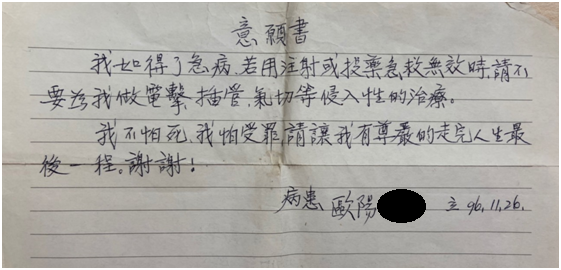 意願書
我如得了急病,若用注射或投藥急救無效時,請不
要為我做電擊,插管,氣切等侵入性的治療。
我不怕死,我怕受罪,請讓我有尊嚴的走完人生最
後一程。謝謝!
病患 歐陽 立 96.11.26.